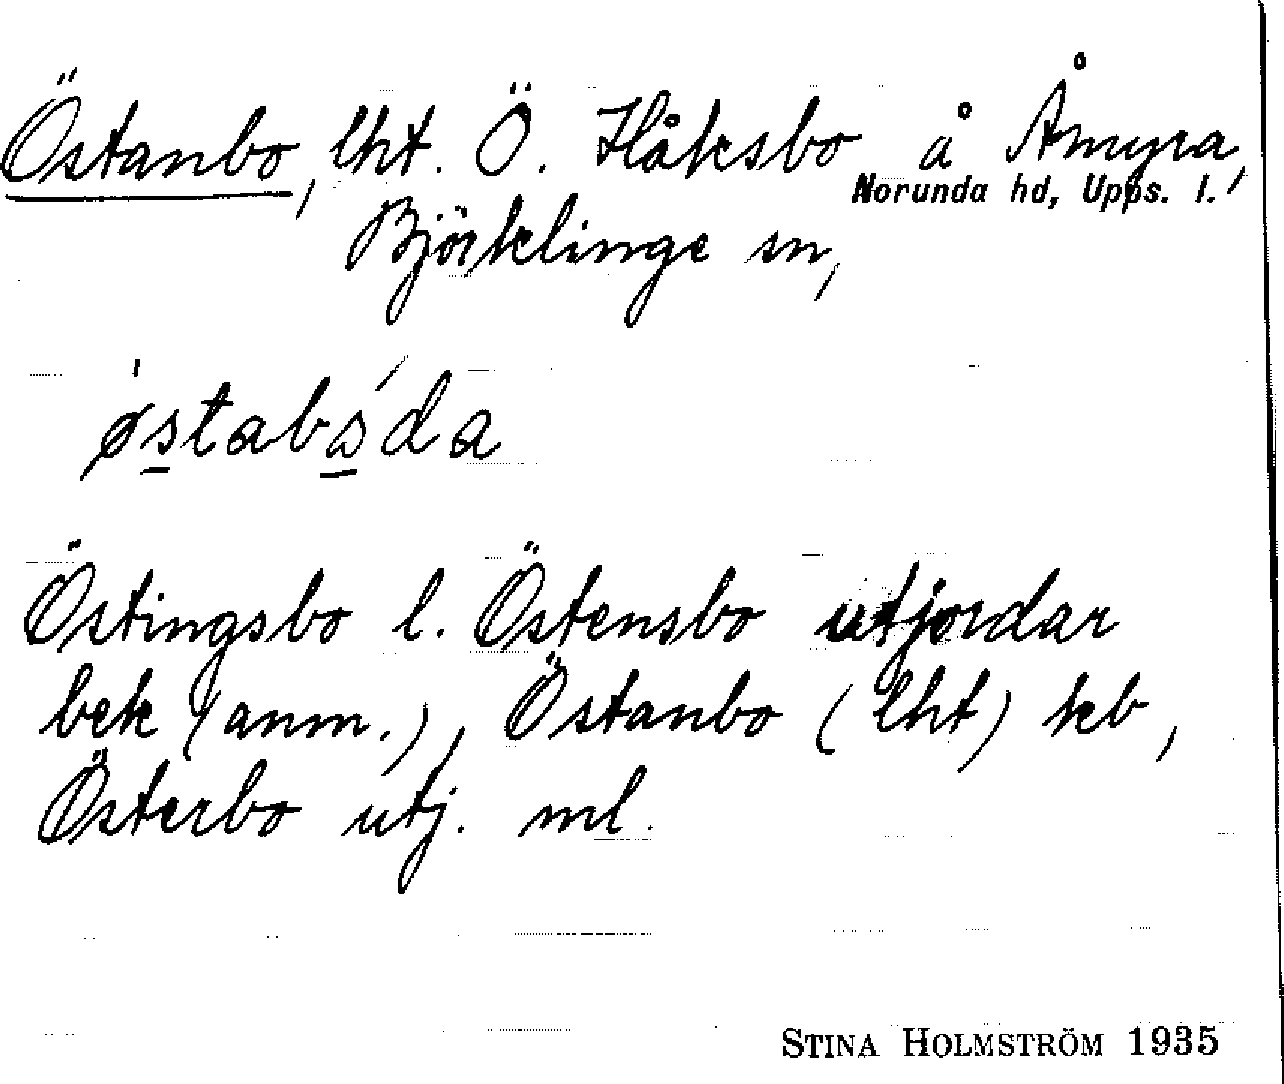 Östanbo, lht. Ö. Håksbo å Åmyra,
Norunda hd, Upps. l.
Björklinge sn,
Östingsbo l. Östensbo utjordar
bek (anm.), Östanbo (lht) kb,
Österbo utj. ml.
STINA HOLMSTRÖM 1935